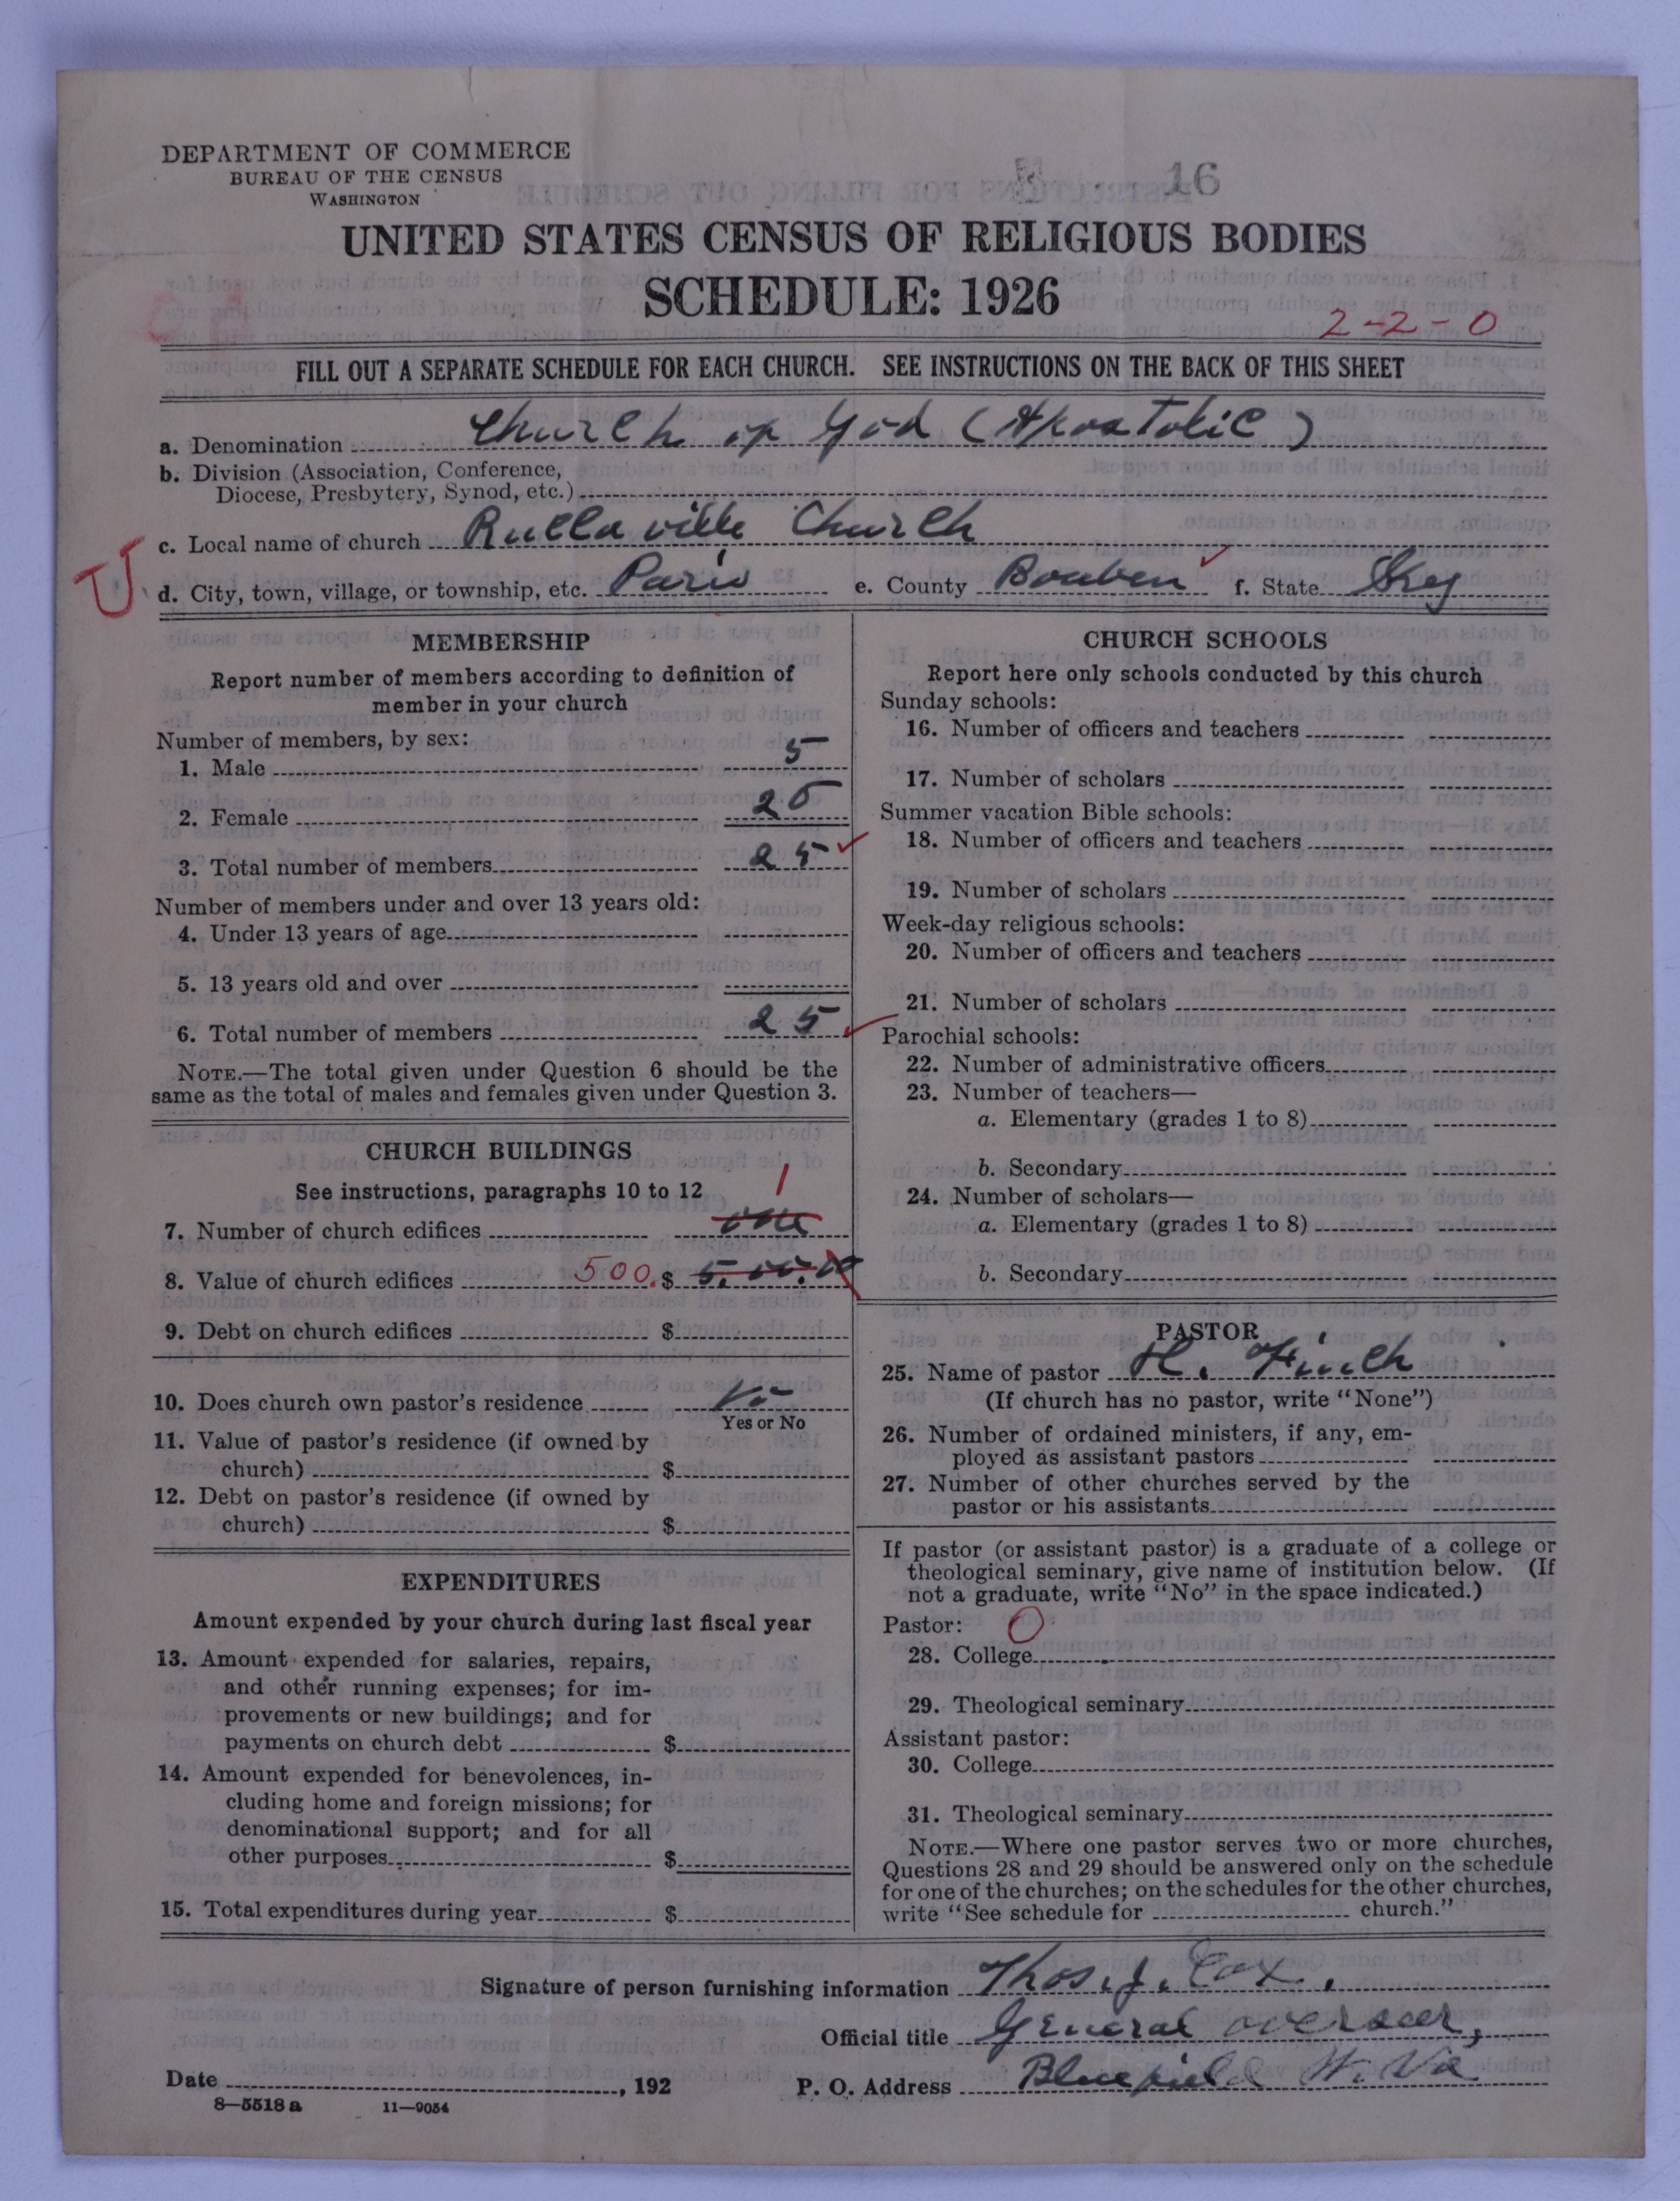 DEPARTMENT OF COMMERCE
BUREAU OF THE CENSUS
WASHINGTON
16
UNITED STATES CENSUS OF RELIGIOUS BODIES
SCHEDULE: 1926
2-2-0
FILL OUT A SEPARATE SCHEDULE FOR EACH CHURCH. SEE INSTRUCTIONS ON THE BACK OF THIS SHEET
a. Denomination Church of God (Apostolic)
b. Division (Association, Conference,
Diocese, Presbytery, Synod, etc.)
c. Local name of church Ruclaville Church
U
d. City, town, village, or township, etc. Paris e. County Bouben f. State Key
MEMBERSHIP
Report number of members according to definition of
member in your church
Number of members, by sex:
1. Male 5
2. Female 20
3. Total number of members 25
Number of members under and over 13 years old:
4. Under 13 years of age
5. 13 years old and over
6. Total number of members 25
NOTE.—The total given under Question 6 should be the
same as the total of males and females given under Question 3.
CHURCH BUILDINGS
See instructions, paragraphs 10 to 12
1
7. Number of church edifices one
8. Value of church edifices 500. $ 5.00.00
9. Debt on church edifices $
10. Does church own pastor's residence No
Yes or No
11. Value of pastor's residence (if owned by
church) $
12. Debt on pastor's residence (if owned by
church) $
EXPENDITURES
Amount expended by your church during last fiscal year
13. Amount expended for salaries, repairs,
and other running expenses; for im-
provements or new buildings; and for
payments on church debt $
14. Amount expended for benevolences, in-
cluding home and foreign missions; for
denominational support; and for all
other purposes $
15. Total expenditures during year $
CHURCH SCHOOLS
Report here only schools conducted by this church
Sunday schools:
16. Number of officers and teachers
17. Number of scholars
Summer vacation Bible schools:
18. Number of officers and teachers
19. Number of scholars
Week-day religious schools:
20. Number of officers and teachers
21. Number of scholars
Parochial schools:
22. Number of administrative officers
23. Number of teachers—
a. Elementary (grades 1 to 8)
b. Secondary
24. Number of scholars—
a. Elementary (grades 1 to 8)
b. Secondary
PASTOR
25. Name of pastor H. Finch
(If church has no pastor, write "None")
26. Number of ordained ministers, if any, em-
ployed as assistant pastors
27. Number of other churches served by the
pastor or his assistants
If pastor (or assistant pastor) is a graduate of a college or
theological seminary, give name of institution below. (If
not a graduate, write "No" in the space indicated.)
Pastor: O
28. College
29. Theological seminary
Assistant pastor:
30. College
31. Theological seminary
NOTE.—Where one pastor serves two or more churches,
Questions 28 and 29 should be answered only on the schedule
for one of the churches; on the schedules for the other churches,
write "See schedule for church."
Signature of person furnishing information Thos. J. Cox.
Official title General overseer,
Date , 192 P. O. Address Bluefield W. Va
8—5518 a 11—9054